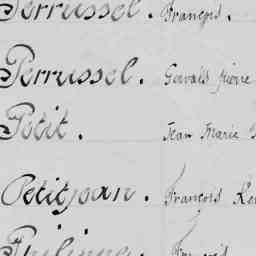 Perrussel. François.
Perrussel. Gervais Pierre
Petit. Jean Marie
Petitjean. François
Philippe. François